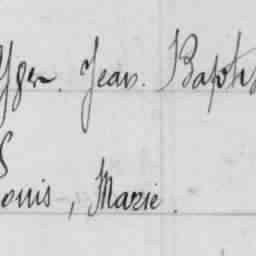 Yger. Jean. Baptis
Louis, Marie.